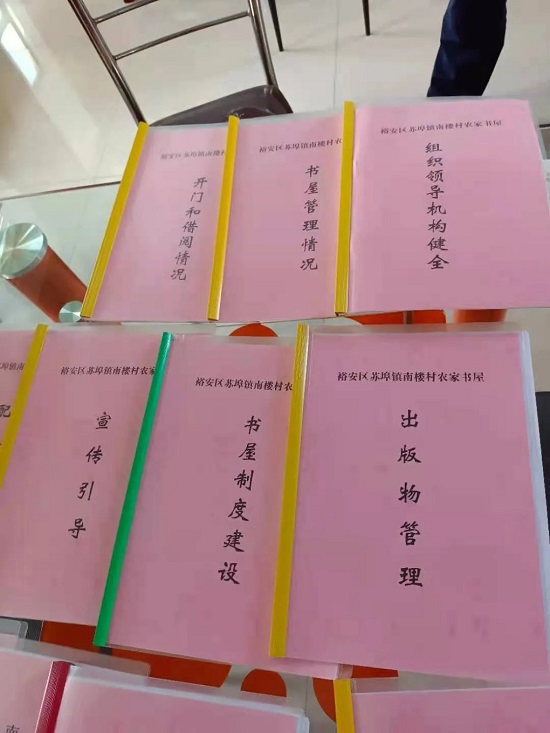 裕安区苏埠镇南楼村农
开门和借阅情况
裕安区苏埠镇南楼村农
书屋管理情况
裕安区苏埠镇南楼村农家书屋
组织领导机构健全
配
裕安区苏埠镇南
宣传引导
裕安区苏埠镇南楼村农
书屋制度建设
裕安区苏埠镇南楼村农家书屋
出版物管理
南